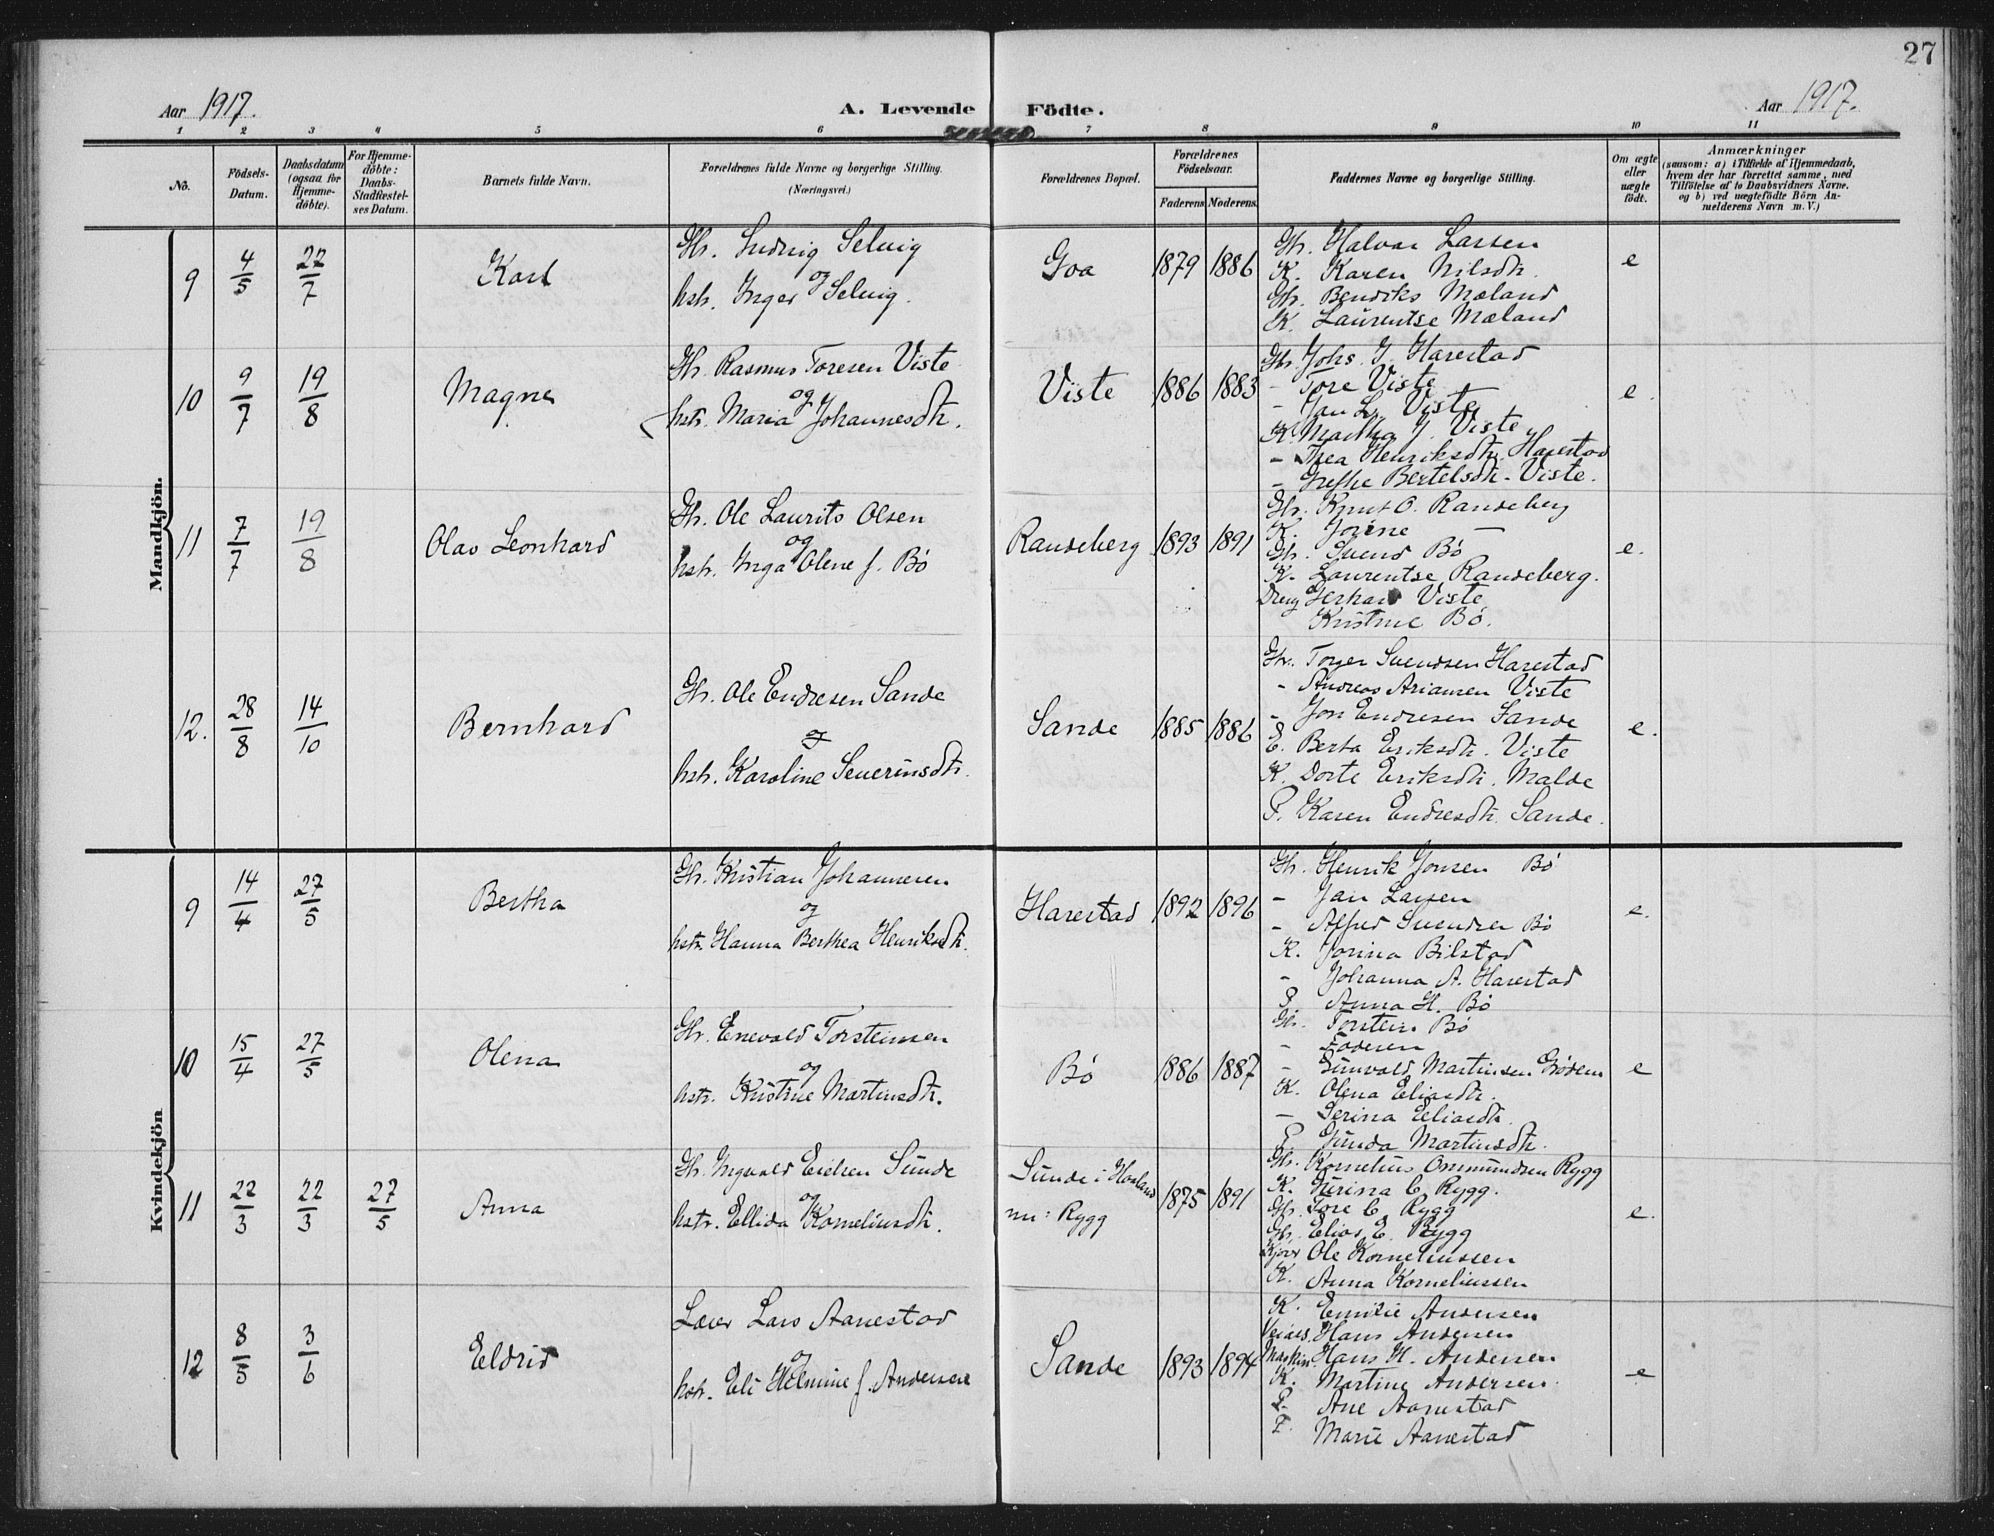 27
Aar 1917.
A. Levende Födte.
Aar 1917.
1 2 3 4 5 6 7 8 9 10 11
No.
Födsels-
Datum.
Daabsdatum
(ogsaa for
Hjemme-
döbte).
For Hjemme-
döbte:
Daabs-
Stadfæstel-
ses Datum.
Barnets fulde Navn.
Forældrenes fulde Navne og borgerlige Stilling.
(Næringsvei.)
Forældrenes Bopæl.
Forældrenes
Födselsaar.
Faderens. Moderens.
Faddernes Navne og borgerlige Stilling.
Om ægte
eller
uægte
födt.
Anmærkninger
(saasom: a) i Tilfælde af Hjemmedaab,
hvem der har forrettet samme, med
Tilföielse af to Daabsvidners Navne.
og b) ved uægtefödte Börn An-
melderens Navn m. V.)
Mandkjön.
9
4/5
22/7
Karl
Gbr. Ludvig Selvig
og
hstr. Inger Selvig.
Goa
1879
1886
Gbr. Halvar Larsen
K. Karen Nilsdtr.
Gbr. Bendiks Mæland
K. Laurentse Mæland
e
10
9/7
19/8
Magne
Gbr. Rasmus Toresen Viste
og
hstr. Maria Johannesdtr.
Viste
1886
1883
Gbr. Johs. J. Harestad
- Tore Viste
- Jan L. Viste
K. Martha J. Viste
- Thea Henriksdtr. Harestad
- Grethe Bertelsdtr. Viste.
e.
11
7/7
19/8
Olav Leonhard
Gbr. Ole Laurits Olsen
og
hstr. Inga Olene f. Bø
Randeberg
1893
1891
Gbr. Knut O. Randeberg
K. Jorine —
Gbr. Svend Bø
K. Laurentse Randeberg.
Dreng Gerhard Viste
Kristine Bø.
e.
12.
28/8
14/10
Bernhard
Gbr. Ole Endresen Sande
og
hstr. Karoline Severinsdtr.
Sande
1885
1886
Gbr. Torger Svendsen Harestad
- Andreas Ariansen Viste
- Jon Endresen Sande
E. Berta Eriksdtr. Viste
K. Dorte Eriksdtr. Malde
P. Karen Endresdtr. Sande.
e.
Kvindekjön
9
14/4
27/5
Bertha
Gbr. Kristian Johannesen
og
hstr. Hanna Berthea Henriksdtr.
Harestad
1892
1896
Gbr. Henrik Jonsen Bø
- Jan Larsen
- Alfred Svendsen Bø
K. Jorina Bilstad
- Johanna A. Harestad
P. Anna H. Bø
e.
10
15/4
27/5
Olena
Gbr. Enevald Torsteinsen
og
hstr. Kristine Martinsdtr.
Bø
1886
1887
Gbr. Torstein Bø
- Faderen
- Gunvald Martinsen Grødem
K. Olena Eliasdtr.
- Serina Eliasdtr.
P. Gunda Martinsdtr.
e
11
22/3
22/3
27/5
Anna
Gbr. Ingvald Eielsen Sunde
og
hstr. Ellida Korneliusdtr.
Sunde i Haaland
nu: Rygg
1875
1891
Gbr. Kornelius Ommundsen Rygg
K. Serina C. Rygg.
Gbr. Tore C. Rygg
Gbr. Elias E. Rygg
Ole Korneliussen
K. Anna Korneliussen
e.
12
8/5
3/6
Eldrid
Lærer Lars Aanestad
og
hstr. Eli Helmine f. Andersen
Sande
1893
1894
K. Emilie Andersen
Hans Andersen
Maskin. Hans H. Andersen
K. Martine Andersen.
P. Ane Aanestad
P. Marie Aanestad
e